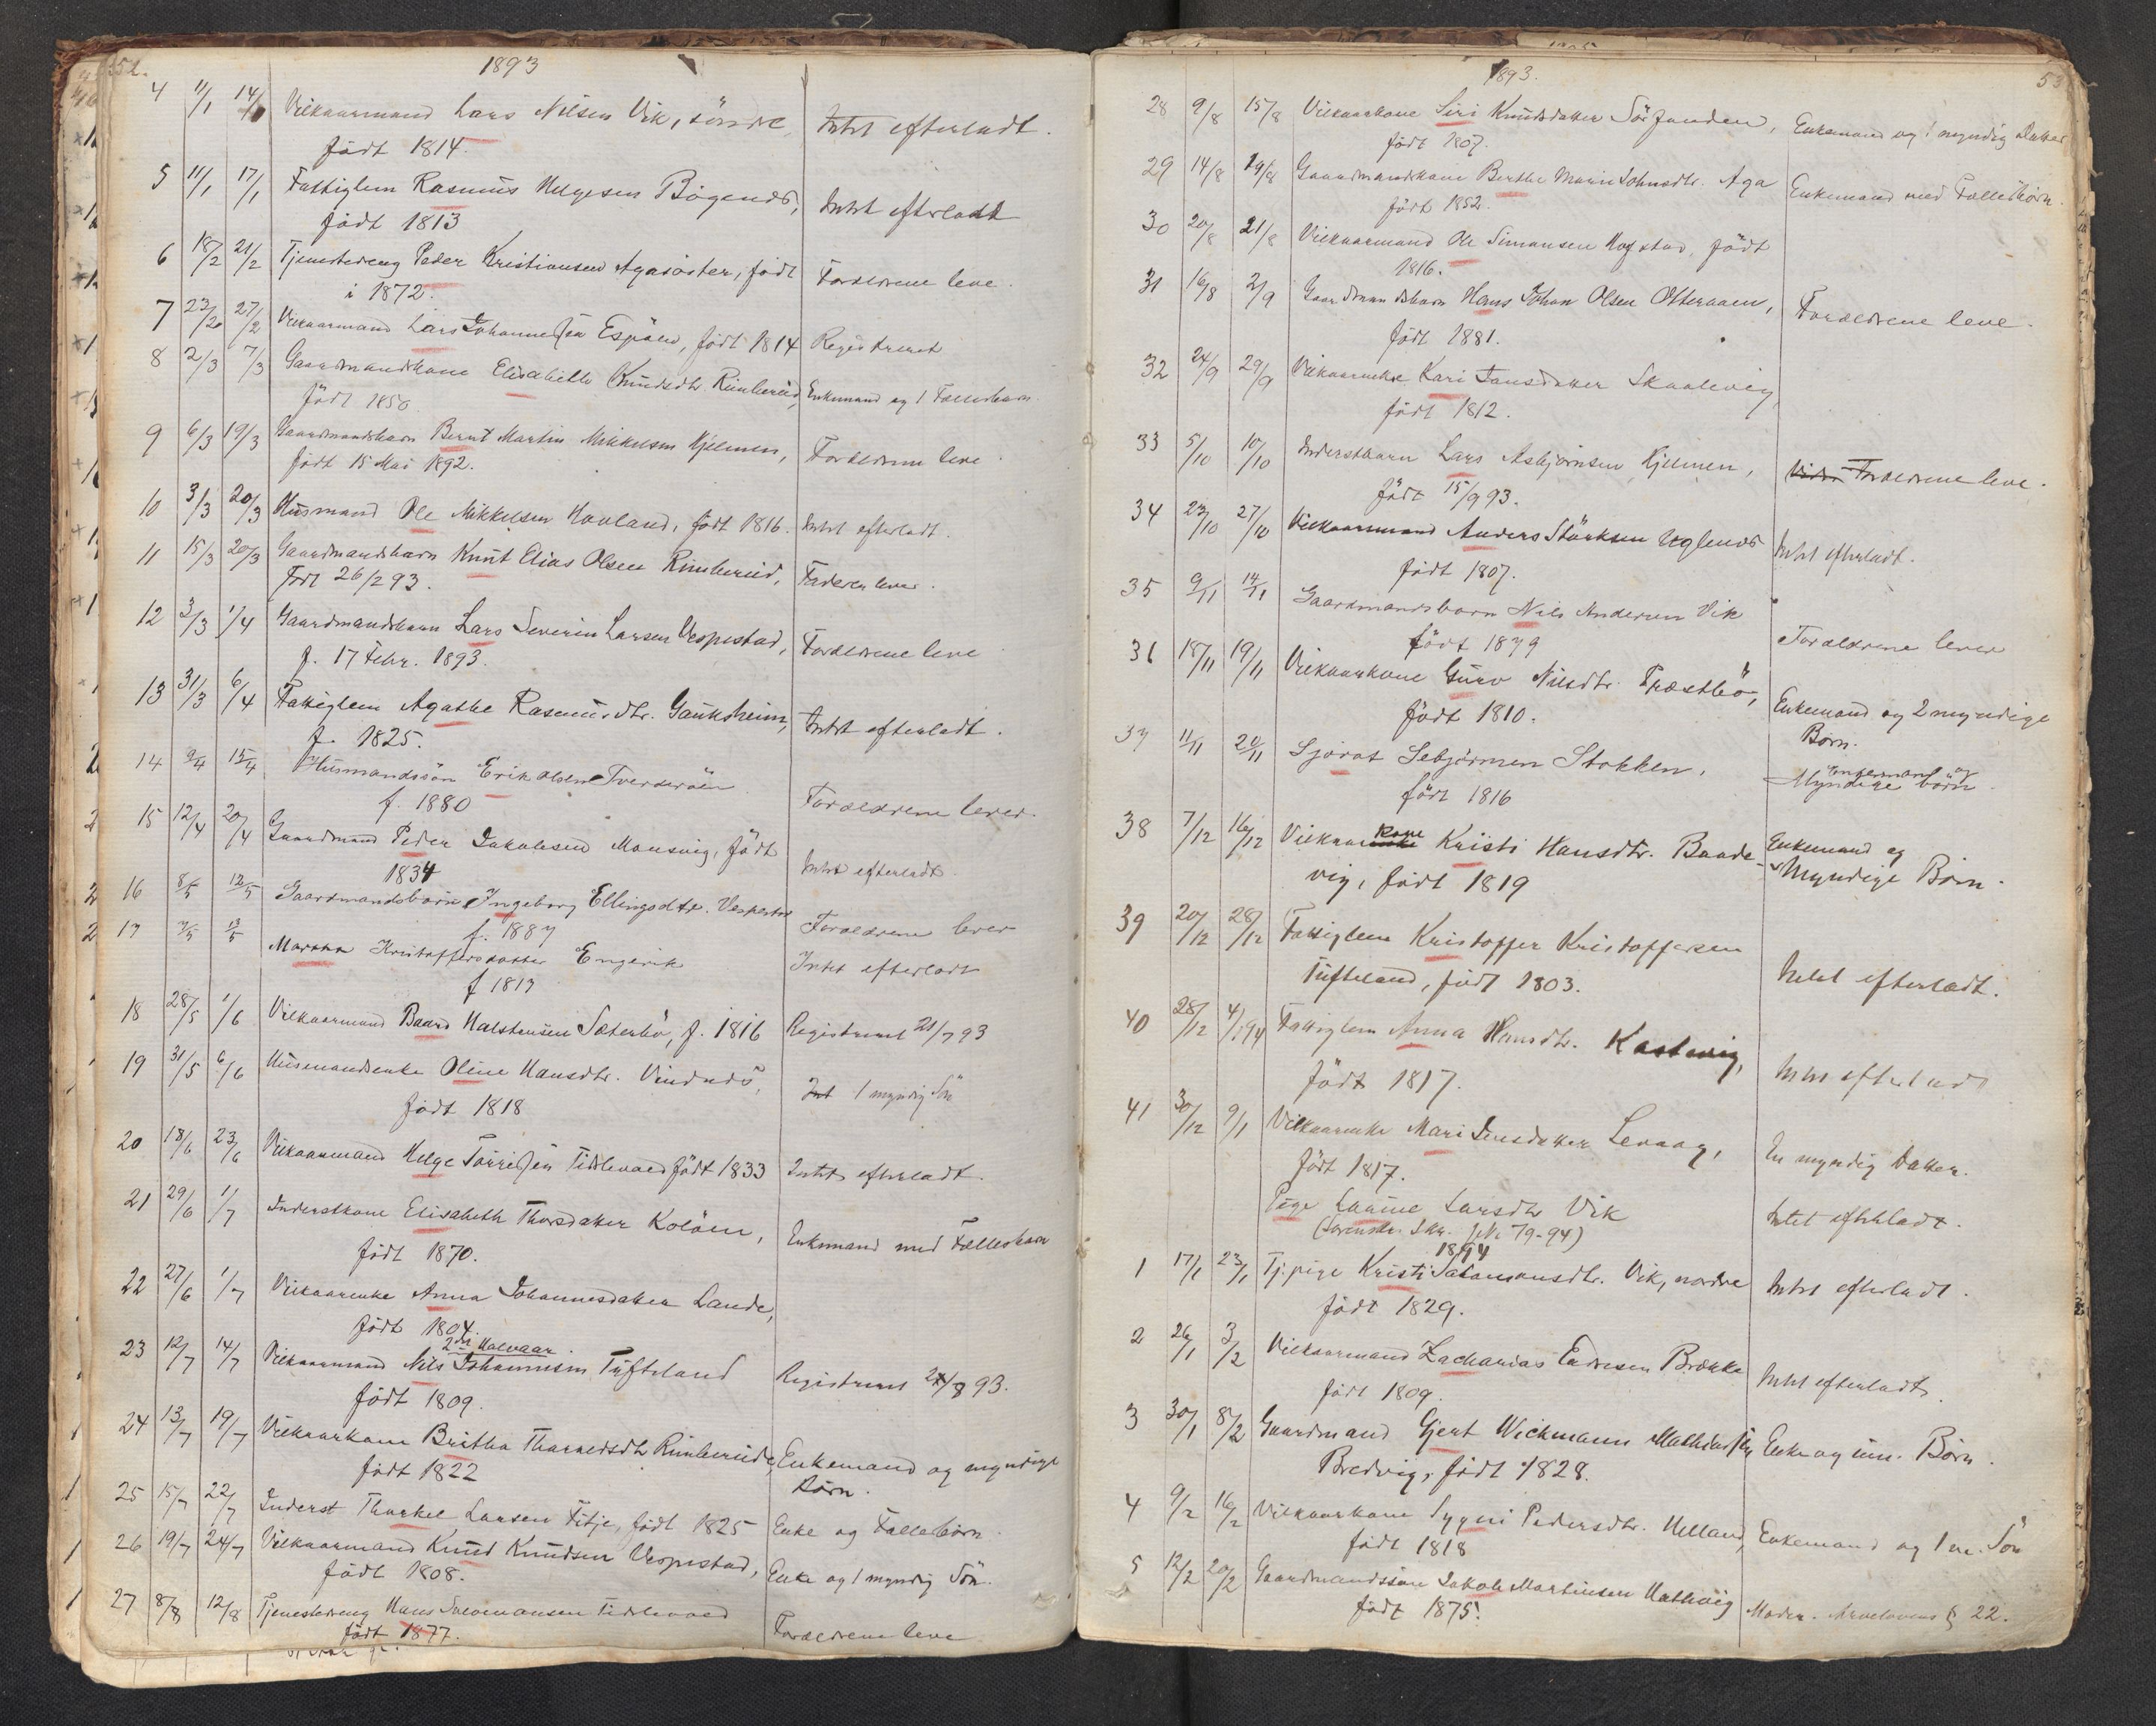 352.
1893
4 11/1 14/1 Vilkaarmand Lars Nilsen Vik, söndre, Intet efterladt.
födt 1814.
5 11/1 17/1 Fattiglem Rasmus Helgesen Bögends, Intet efterladt
födt 1813
6 18/2 21/2 Tjenestedreng Peder Kristiansen Agasöster, födt Forældrene leve.
i 1872.
7 23/2 27/2 Vilkaarmand Lars Johannessen Espöen, födt 1814 Registreret
8 2/3 7/3 Gaardmandskone Elisabeth Knudsdtr. Rimbereid, Enkemand og 1 Fællesbarn.
födt 1850
9 6/3 19/3 Gaardmandsbarn Bernt Martin Mikkelsen Hjelmen, Forældrene leve.
födt 15 Mai 1892.
10 3/3 20/3 Husmand Ole Mikkelsen Hovland, födt 1816. Intet efterladt.
11 15/3 20/3 Gaardmandsbarn Knut Elias Olsen Rimbereid, Faderen lever.
Födt 26/2 93.
12 3/3 1/4 Gaardmandsbarn Lars Severin Larsen Vespestad, Forældrene leve
f. 17 Febr. 1893.
13 31/3 6/4 Fattiglem Agathe Rasmusdtr. Gauksheim, Intet efterladt.
f. 1825.
14 9/4 15/4 Husmandssön Erik Olsen Tverderöen
f. 1880 Forældrene lever.
15 12/4 20/4 Gaardmand Peder Jakobsen Mousvig, födt
1834 Intet efterladt.
16 8/5 12/5 Gaardmandsbarn Ingeborg Ellingsdtr. Vespestad
f. 1887 Forældrene lever
17 7/5 13/5 Martha Kristoffersdatter Engevik Intet efterladt
f 1813
18 28/5 1/6 Vilkaarmand Baard Halstensen Sæterbö, f. 1816 Registreret 21/7 93
19 31/5 6/6 Husmandsenke Oline Hansdtr. Vindnes, Int 1 myndig Sön
födt 1818
20 18/6 23/6 Vilkaarmand Helge Torrissen Tislevold födt 1833 Intet efterladt.
21 29/6 1/7 Inderstkone Elisabeth Thorsdatter Kolöen, Enkemand med Fællesbarn
födt 1870.
22 27/6 1/7 Vilkaarenke Anna Johannesdatter Lande,
födt 1804.
2den Halvaar.
23 12/7 14/7 Vilkaarmand Nils Johannesen Tufteland Registreret 24/8 93.
födt 1809.
24 13/7 19/7 Vilkaarkone Britha Tharaldsdtr Rimbereide, Enkemand og myndige
födt 1822 Börn.
25 15/7 22/7 Inderst Thorkel Larsen Fitje, födt 1825 Enke og Fællesbörn.
26 19/7 24/7 Vilkaarmand Knud Knudsen Vespestad, Enke og 1 myndig Sön.
födt 1808.
27 8/8 12/8 Tjenestedreng Hans Salomonsen Tislevold
födt 1877. Forældrene leve
1893.
53
28 9/8 15/8 Vilkaarkone Siri Knudsdatter Sörfonden, Enkemand og 1 myndig Datter
födt 1807.
29 14/8 19/8 Gaardmandskone Berthe Marie Johnsdtr. Aga Enkemand med Fællesbörn.
födt 1852.
30 20/8 21/8 Vilkaarmand Ole Simonsen Hogstad, födt
1816.
31 16/8 2/9 Gaardmandsbarn Hans Johan Olsen Otteraaen, Forældrene leve.
födt 1881.
32 24/9 29/9 Vilkaarenke Kari Jansdatter Skaalevig,
födt 1812.
33 5/10 10/10 Inderstbarn Lars Asbjörnsen Hjelmen, Forældrene leve.
födt 15/9 93.
34 23/10 27/10 Vilkaarmand Anders Störksen Uglenes Intet efterladt.
födt 1807.
35 9/11 14/11 Gaardmandsbarn Nils Andersen Vik
födt 1879 Forældrene lever
36 18/11 19/11 Vilkaarkone Guro Nilsdtr. Præstbö, Enkemand og 2 myndige
födt 1810. Börn.
37 11/11 20/11 Sjovat Sebjörnsen Stokken, Enkemand og
födt 1816 Myndige börn.
38 7/12 16/12 Vilkaarkone Kristi Hansdtr. Baade- Enkemand og
vig, födt 1819 Myndige Börn.
39 20/12 28/12 Fattiglem Kristoffer Kristoffersen
Tufteland, född 1803. Intet efterladt.
40 28/12 4/1 94 Fattiglem Anna Hansdtr. Kastevig,
födt 1817. Intet efterladt
41 30/12 9/1 Vilkaarenke Mari Jensdatter Levaag, En myndig Datter.
födt 1817.
Pige Laurine Larsdtr Vik Intet efterladt.
(Lorensds. Skr. No 79-94)
1894
1 17/1 23/1 Tj.pige Kristi Salomonsdtr. Vik, nordre Intet efterladt.
födt 1829.
2 26/1 3/2 Vilkaarmand Zacharias Endresen Brække Intet efterladt.
födt 1809.
3 30/1 8/2 Gaardmand Gjert Wickmann Mathiassen Enke og um. Börn.
Bredvig, födt 1828.
4 9/2 16/2 Vilkaarkone Sygni Pedersdtr. Helland, Enkemand og 1 m. Sön
födt 1818
5 12/2 20/2 Gaardmandssön Jakob Martinsen Hattevig Moder. Arvelovens § 22.
födt 1875.